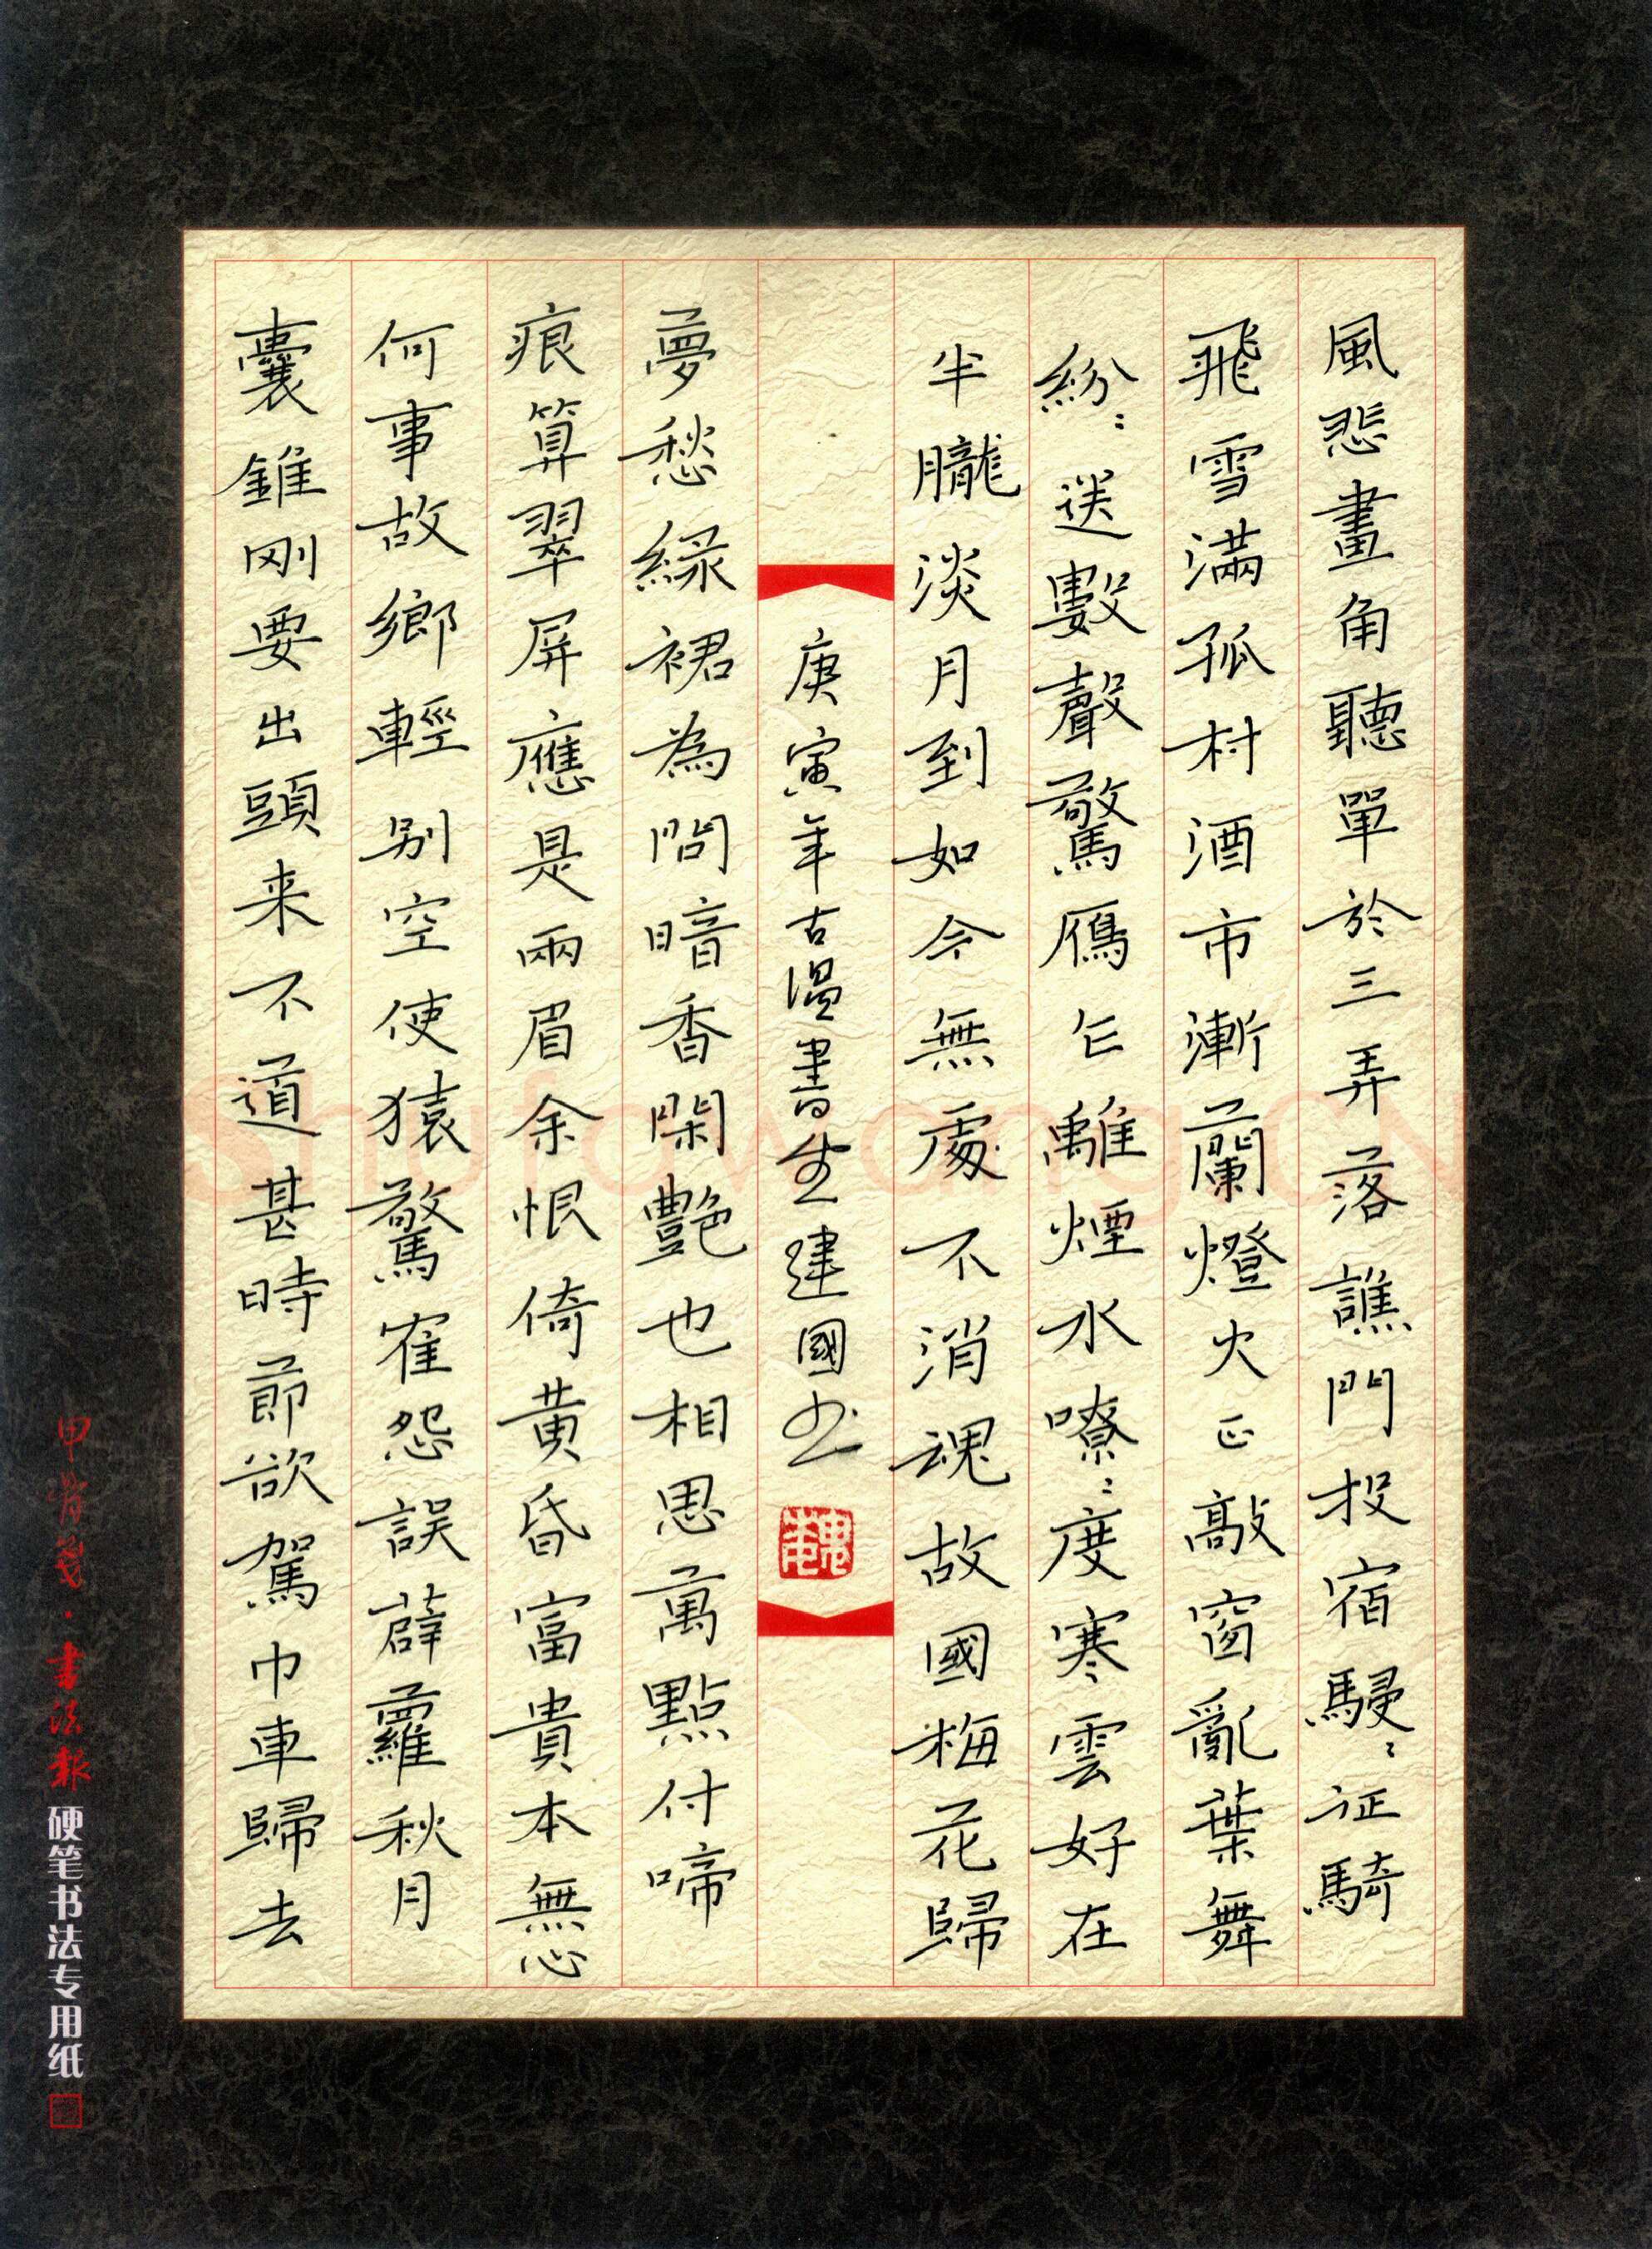 風悲畫角聽單於三弄落譙門投宿駸〻征騎
飛雪滿孤村酒市漸闌燈火正敲窗亂葉舞
紛〻送數聲驚鴈乍離煙水嘹〻度寒雲好在
半朧淡月到如今無處不消魂故國梅花歸
庚寅年古溫書生建國书
夢愁緑裙為問暗香閑艷也相思萬點付啼
痕算翠屏應是兩眉余恨倚黃昏富貴本無心
何事故鄉輕别空使猿驚寉怨誤薜蘿秋月
囊錐刚要出頭来不道甚時節欲駕巾車歸去
甲骨笺·書法報 硬笔书法专用纸